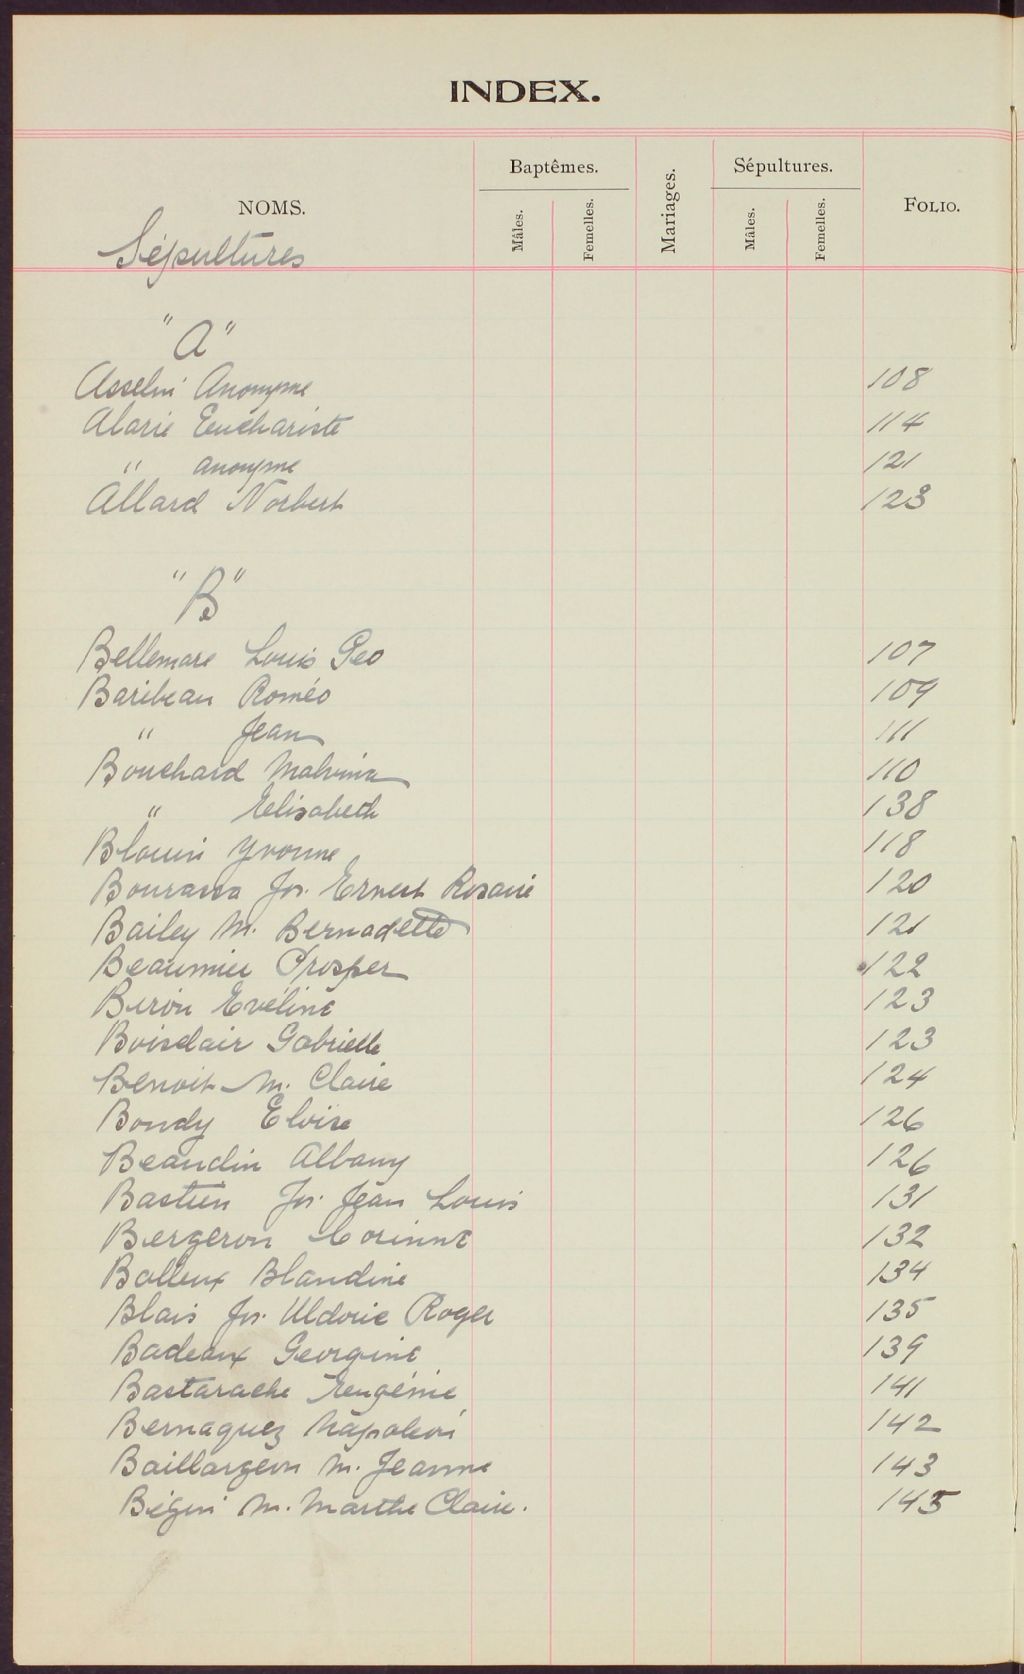 INDEX.
NOMS. Baptêmes. Mâles. Femelles. Mariages. Sépultures. Mâles. Femelles. FOLIO.
Sépultures
"A"
Asselin Anonyme 108
Alarie Euchariste 114
" anonyme 121
Allard Norbert 123
"B"
Bellemare Louis Geo 107
Baribeau Roméo 109
" Jean 111
Bouchard Malvina 110
" Elisabeth 138
Blouin Yvonne 118
Bourassa Jos. Ernest Rosaire 120
Bailey M. Bernadette 121
Beaumier Prosper 122
Biron Evéline 123
Boisclair Gabrielle 123
Benoit M. Claire 124
Bondy Eloise 126
Beaudin Albany 126
Bastien Jos. Jean Louis 131
Bergeron Corinne 132
Balleux Blandine 134
Blais Jos. Uldoric Roger 135
Badeaux Georgine 139
Bastarache Eugénie 141
Bernaquez Napoléon 142
Baillargeon M. Jeanne 143
Bégin M. Marthe Claire. 145